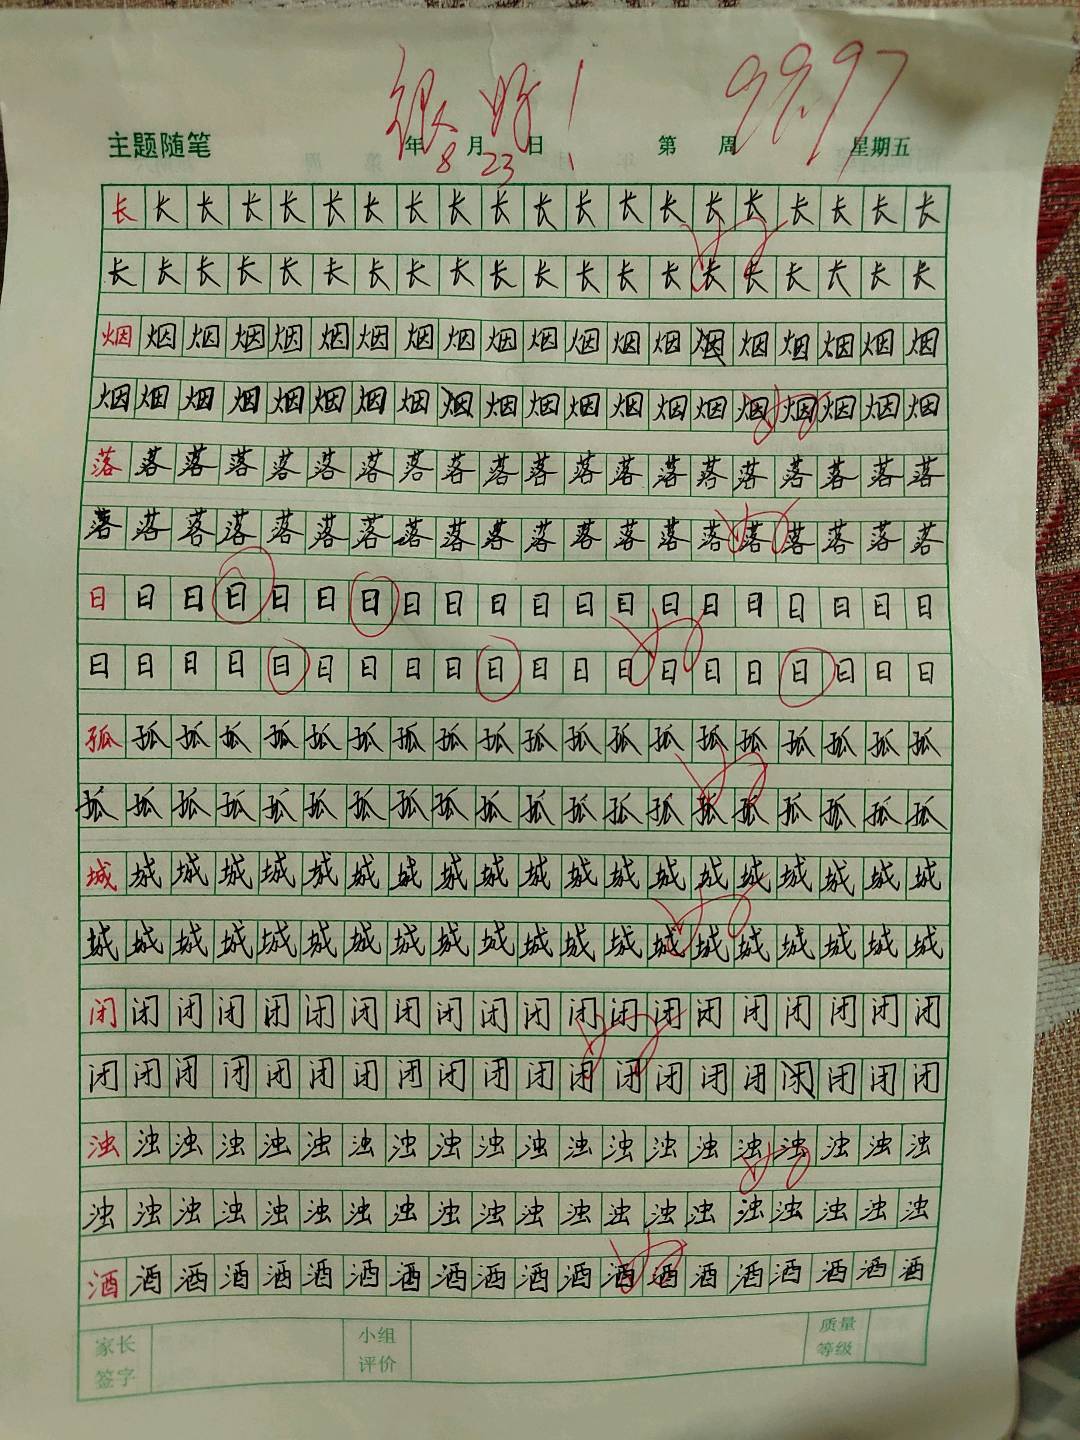 很好! 99.97
主题随笔 年8月23日 第 周 星期五
长长长长长长长长长长长长长长长长长长长长
长长长长长长长长长长长长长长长长长长长长
烟烟烟烟烟烟烟烟烟烟烟烟烟烟烟烟烟烟烟烟
烟烟烟烟烟烟烟烟烟烟烟烟烟烟烟烟烟烟烟烟
落落落落落落落落落落落落落落落落落落落落
落落落落落落落落落落落落落落落落落落落落
日日日日日日日日日日日日日日日日日日日日
日日日日日日日日日日日日日日日日日日日日
孤孤孤孤孤孤孤孤孤孤孤孤孤孤孤孤孤孤孤孤
孤孤孤孤孤孤孤孤孤孤孤孤孤孤孤孤孤孤孤孤
城城城城城城城城城城城城城城城城城城城城
城城城城城城城城城城城城城城城城城城城城
闭闭闭闭闭闭闭闭闭闭闭闭闭闭闭闭闭闭闭闭
闭闭闭闭闭闭闭闭闭闭闭闭闭闭闭闭闭闭闭闭
浊浊浊浊浊浊浊浊浊浊浊浊浊浊浊浊浊浊浊浊
浊浊浊浊浊浊浊浊浊浊浊浊浊浊浊浊浊浊浊浊
酒酒酒酒酒酒酒酒酒酒酒酒酒酒酒酒酒酒酒酒
家长签字 小组评价 质量等级